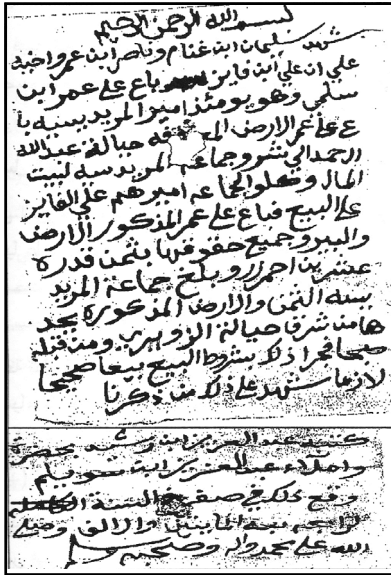 بسم الله الرحمن الرحيم
شهد سليمان ابن غنام وناصر ابن عمر واخيه
علي ان علي ابن فايز باع على عمر ابن
سلمي وهو يومئذ امير المربد يبيه با
ع على عمر الارض حيالة عبدالله
الحمد الي شرو جماعة المربد سه لبيت
المال وجماعه اميرهم علي الفايز
على البيع فباع على عمر المذكور الارض
والبير وجميع حقوقها بثمن قدره
عشرين احمر وبلغ جماعة المربد
سه الثمن والارض المذكورة يحد
ها من شرق حيالة ومن قبله
ذلك بشروط البيع بيعا صحيحا
لازما شهد على ذلك من ذكرنا
كتبه عبدالعزيز ابن رشيد بحضرة
واملاء عبدالعزيز ابن سويلم
وقع ذلك في صفر السنة
بعد المايتين والالف وصلى
الله على محمد واله وصحبه وسلم